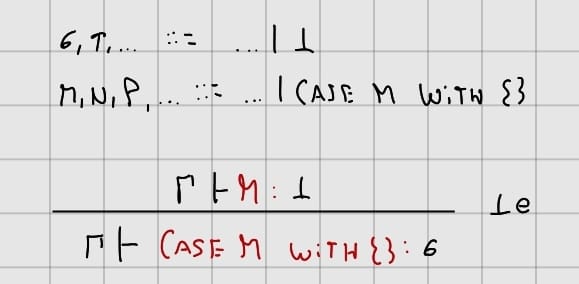 σ, τ, ... ::= ... | ⊥
M, N, P, ... ::= ... | CASE M WITH {}
Γ ⊢ M : ⊥
⊥e
Γ ⊢ CASE M WITH {} : σ